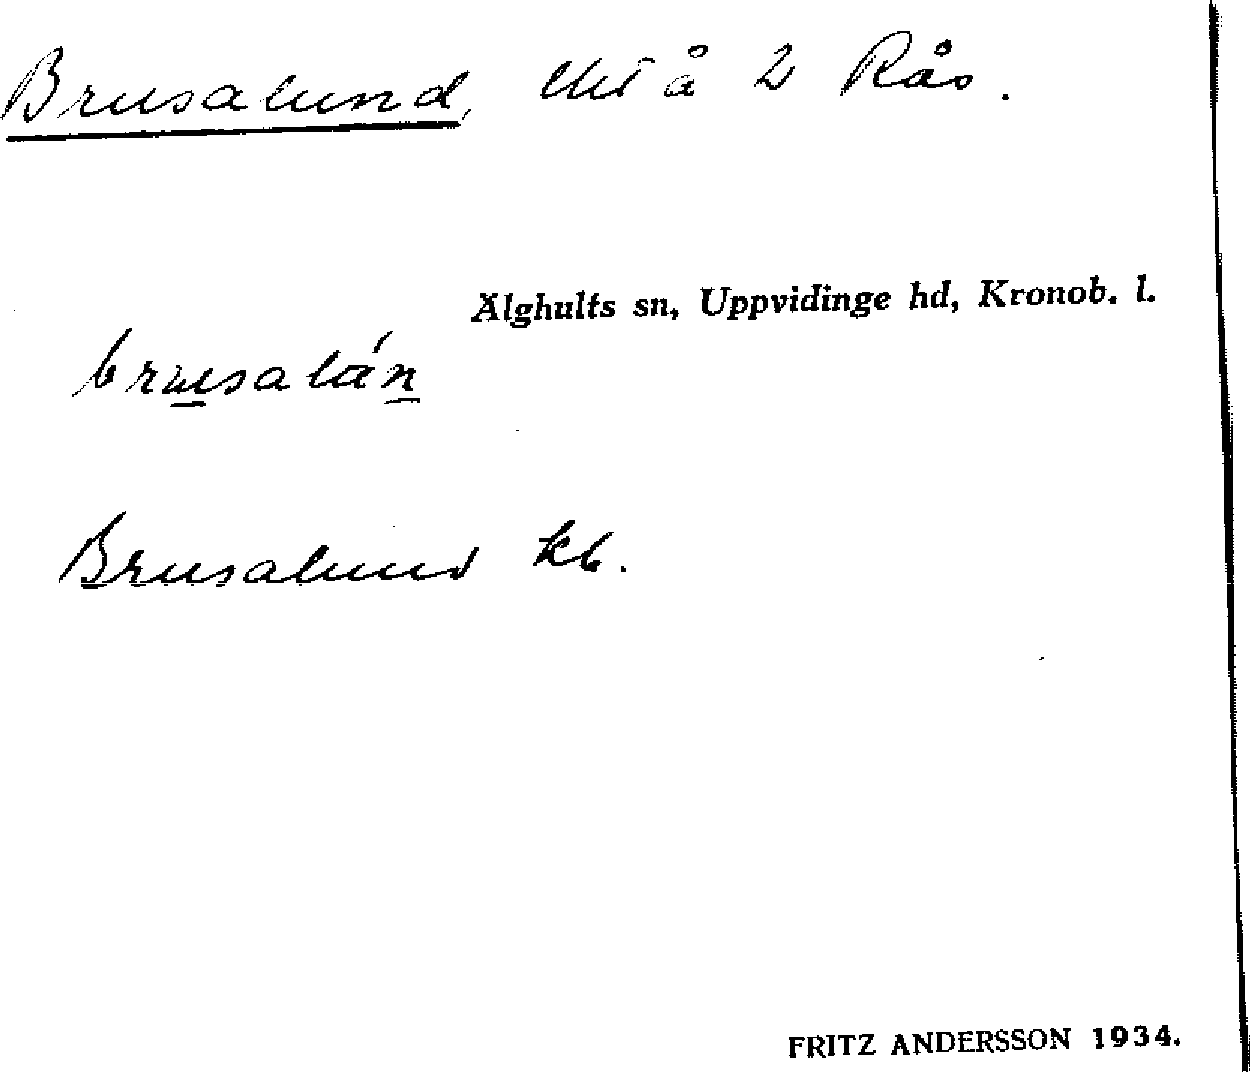 Brusalund, lht å 2 Rås.
Älghults sn, Uppvidinge hd, Kronob. l.
Brusalund kb.
FRITZ ANDERSSON 1934.